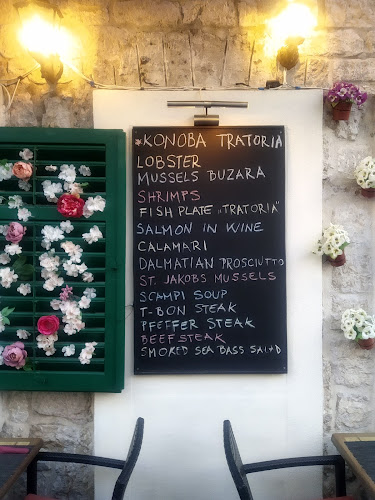 *KONOBA TRATORIA
LOBSTER
MUSSELS BUZARA
SHRIMPS
FISH PLATE „TRATORIA"
SALMON IN WINE
CALAMARI
DALMATIAN PROSCIUTTO
ST. JAKOBS MUSSELS
SCAMPI SOUP
T-BON STEAK
PFEFFER STEAK
BEEFSTEAK
SMOKED SEA BASS SALAD